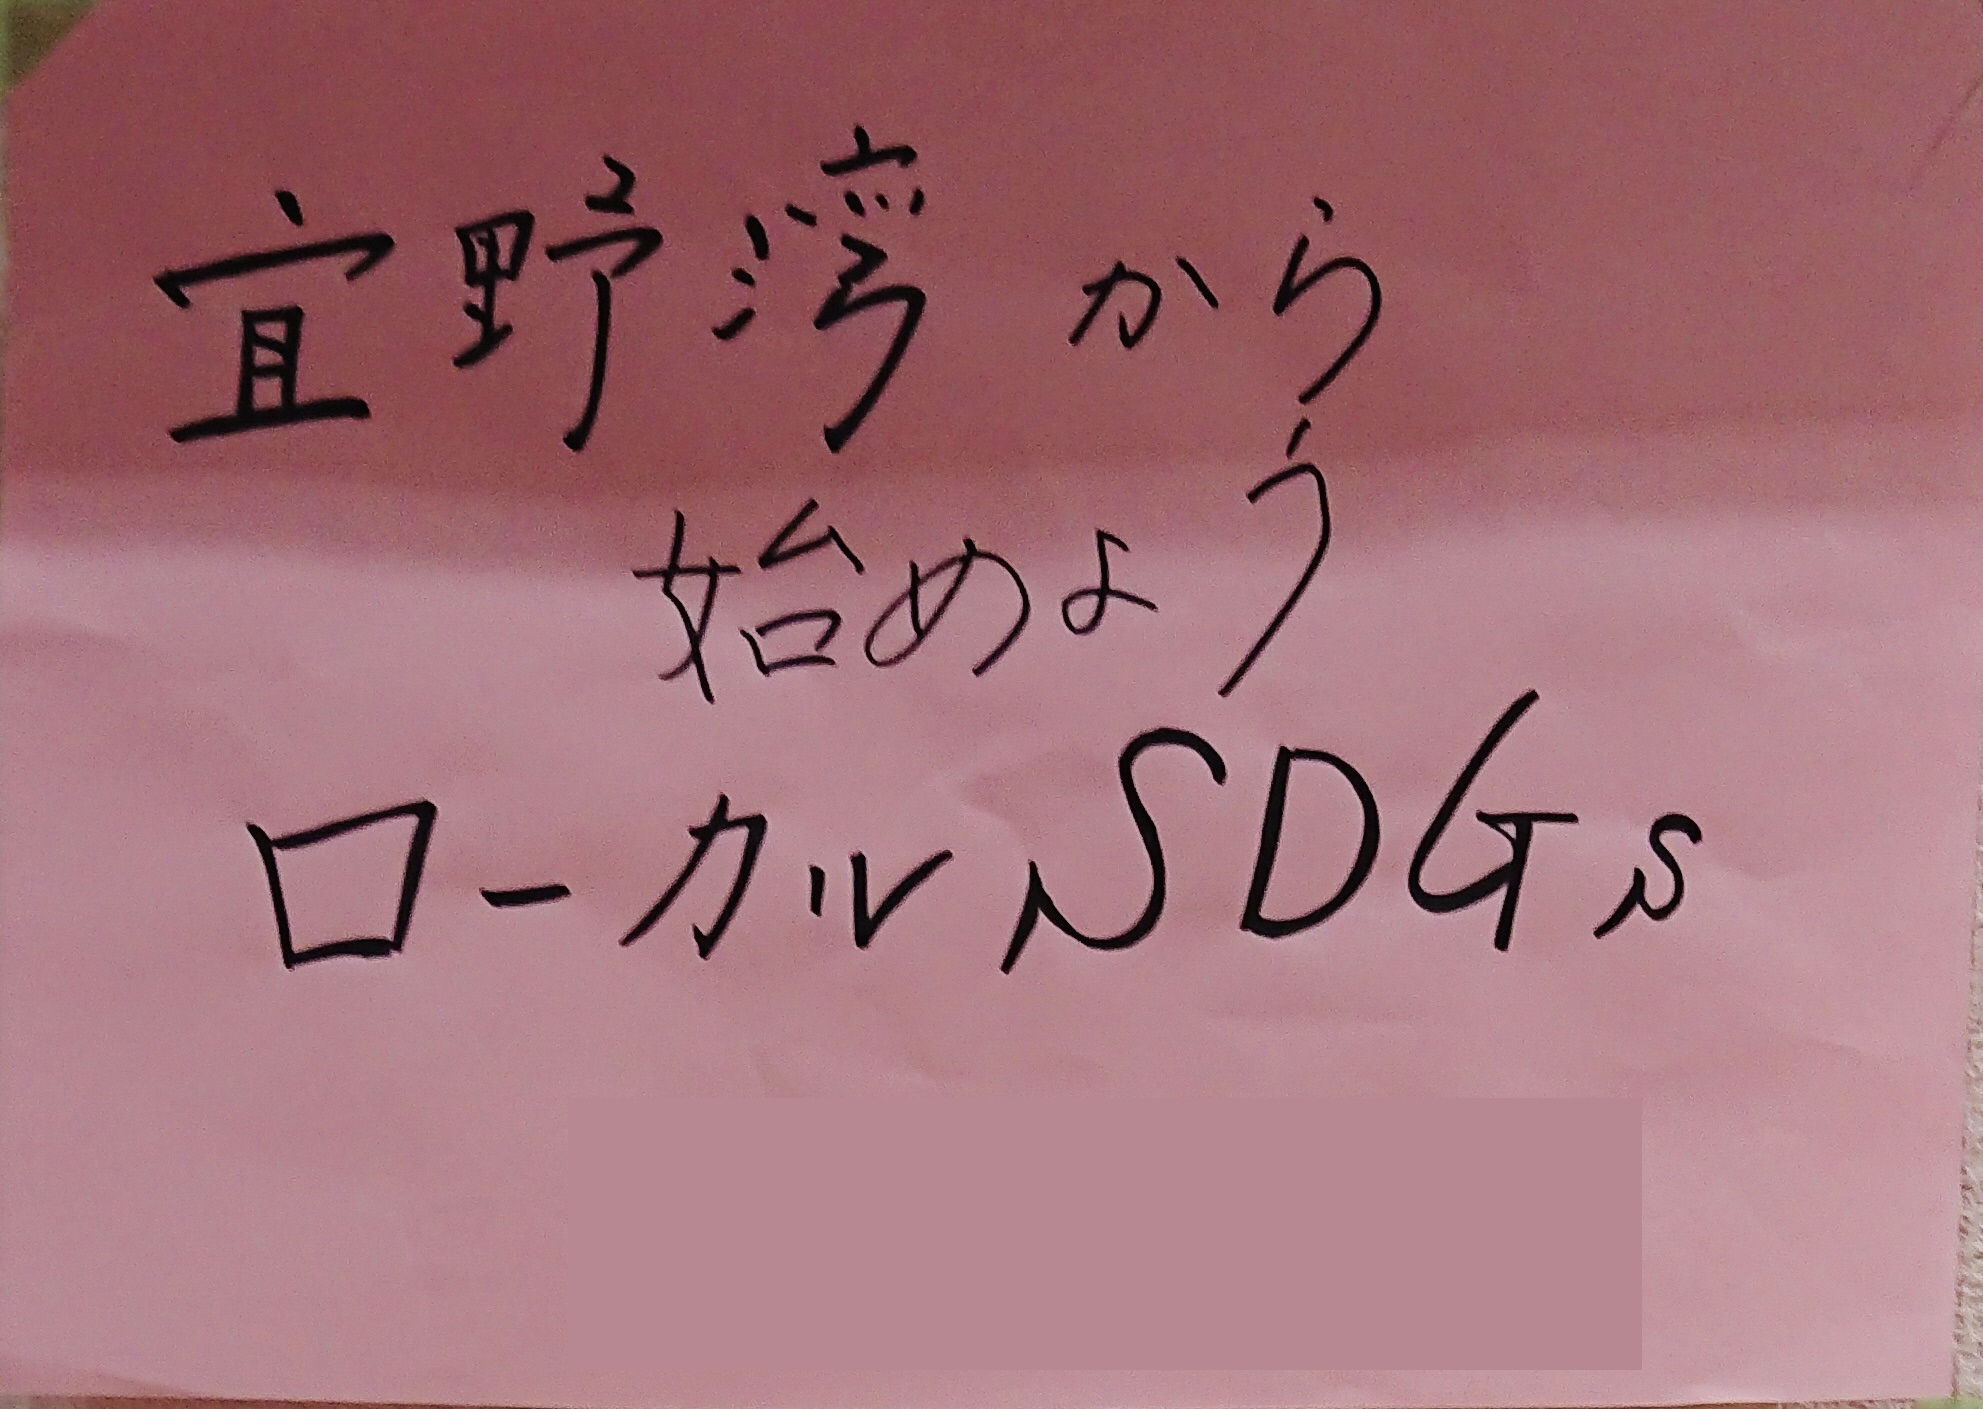 宜野湾から
始めよう
ローカルSDGs